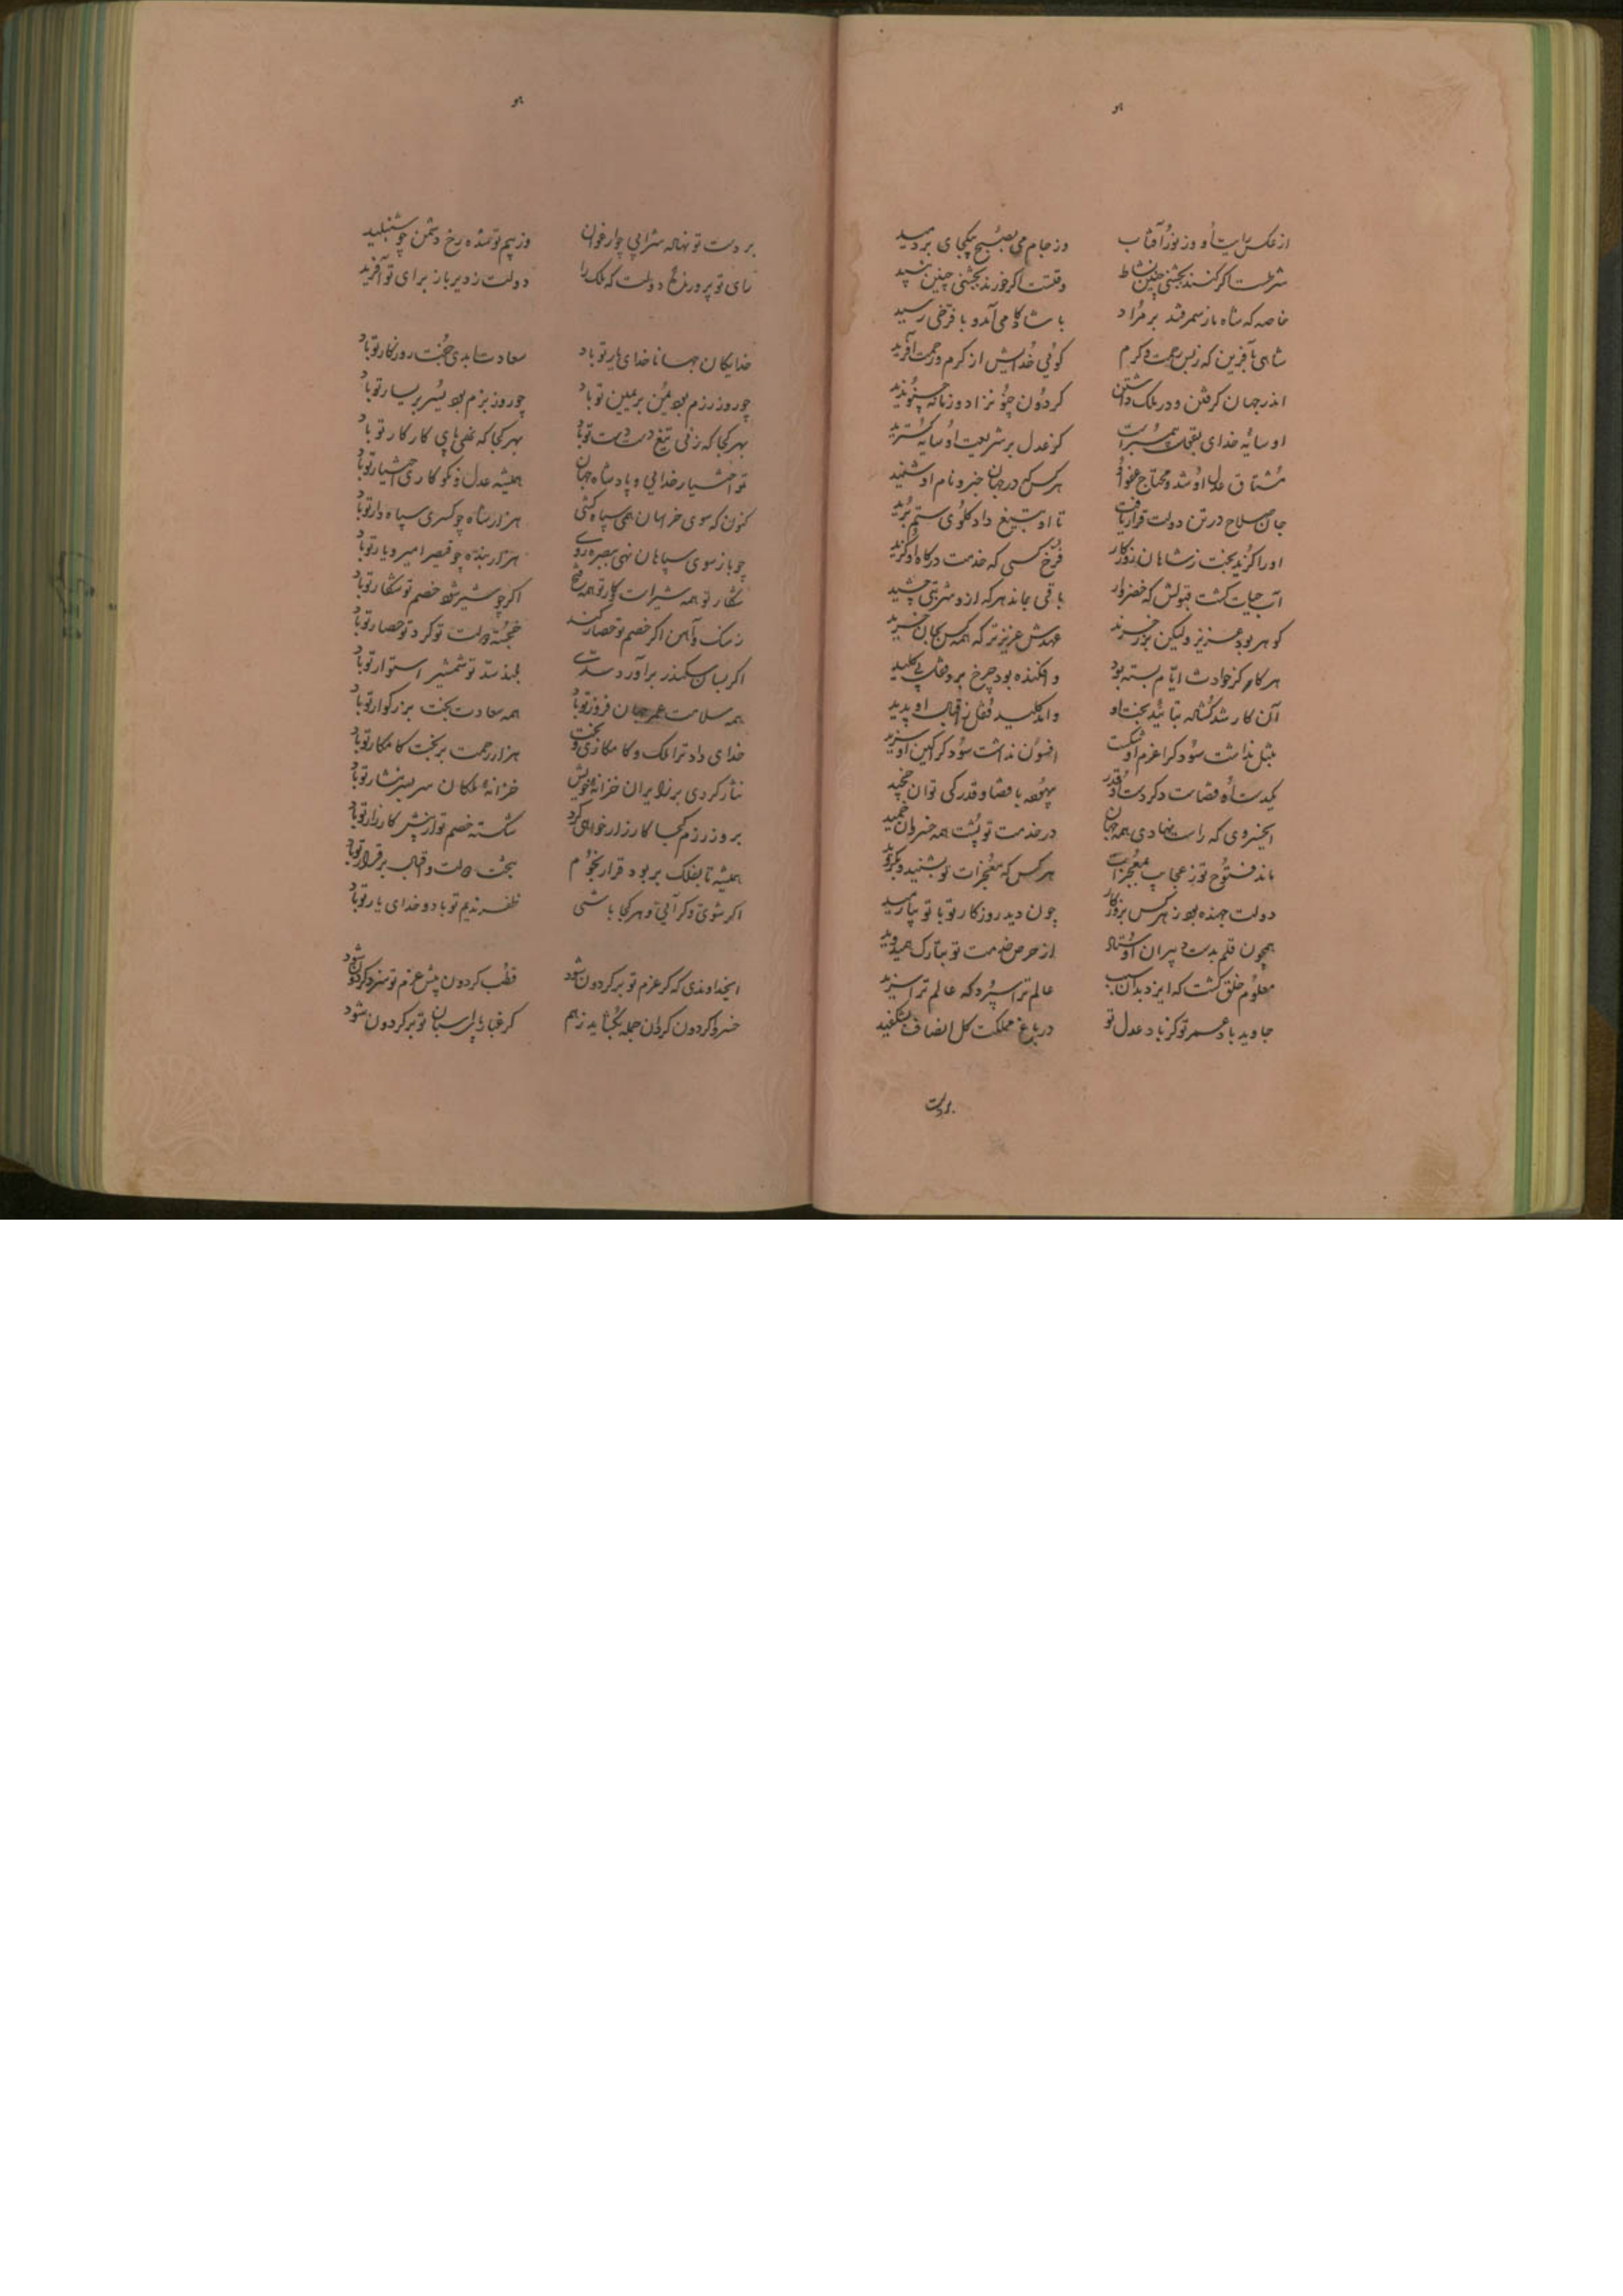 هو
از عکس رایت او وز نور آفتاب وز جام می بصبح یکجای بردمید
شرطست اگر کنند بجشنی چنین نشاط وقتست اگر خورند بجشنی چنین نبید
خاصه که شاه باز سمرقند بر مراد با شادکامی آمد و با فرخی رسید
شاهی بآفرین که ز بس رحمت و کرم گوئی خدایش از کرم و رحمت آفرید
اندر جهان گرفتن و در ملک داشتن گردون چنو نزاد و زمانه چنو ندید
او سایه خدای کز عدل بر شریعت او سایه گسترید
مشتاق عدل او شد و محتاج عفو او هر کس که در جهان خبر و نام او شنید
جان صلاح در تن دولت قرار یافت تا او بتیغ داد گلوی ستم برید
او را گزید بخت ز شاهان روزگار فرخ کسی که خدمت درگاه او گزید
آب حیات گشت قبولش که خضروار باقی بماند هر که ازو شربتی چشید
گوهر بود عزیز ولیکن بزر خرند عهدش عزیزتر که همه کس بجان خرید
هر کار کز حوادث ایام بسته بود وافکنده بود چرخ برو قفل بی کلید
آن کار شد گشاده بتأیید بخت او وآمد کلید قفل ز اقبال او پدید
نداشت سود کرا عزم او شکست افسون نداشت سود کرا کین او گزید
یکدست او قضاست دگر دست او قدر بیهوده با قضا و قدر کی توان چخید
ای خسروی که راست نهادی همه جهان در خدمت تو پشت همه خسروان خمید
ماند فتوح تو ز عجایب بمعجزات هر کس که معجزات تو بشنید بگروید
دولت جهنده بود ز هر کس بروزگار چون دید روزگار تو با تو بیارمید
همچون قلم بدست دبیران اوستاد از حرص خدمت تو بتارک همی دوید
معلوم خلق گشت که ایزد بدان سبب عالم ترا سپرد که عالم ترا سزید
جاوید باد عمر تو کز باد عدل تو در باغ مملکت گل انصاف بشکفید
بر دست
هو
بر دست تو نهاده شرابی چو ارغوان وز بیم تو شده رخ دشمن چو شنبلید
رای تو پرورد دولت که ملک را دولت ز دیر باز برای تو آفرید
خدایگان جهانا خدای یار تو باد سعادت ابدی جفت روزگار تو باد
چو روز رزم بود یمن بر یمین تو باد چو روز بزم بود یسر بر یسار تو باد
بهر کجا که زنی تیغ دست دست تو باد بهر کجا که نهی پای کار کار تو باد
تو اختیار خدایی و پادشاه جهان همیشه عدل و نکوکاری اختیار تو باد
کنون که سوی خراسان همی سپاه کشی هزار شاه چو کسری سپاه دار تو باد
چو باز سوی سپاهان نهی روی هزار بنده چو قیصر امیر و یار تو باد
شکار تو همه شیرست و کار تو همه فتح اگر چو شیر شود خصم تو شکار تو باد
ز سنگ و آهن اگر خصم تو حصار کند خجسته دولت تو گرد تو حصار تو باد
اگر بسان سکندر برآورد سدی بلند سد تو شمشیر استوار تو باد
همه سلامت عمر جهان فروز تو باد همه سعادت بخت بزرگوار تو باد
خدای داد ترا ملک و کامکاری و بخت هزار رحمت بر بخت کامکار تو باد
نثار کردی بر زایران خزانه خویش خزانه ملکان سر بسر نثار تو باد
بروز رزم کجا کارزار خواهی کرد شکسته خصم تو از پیش کارزار تو باد
همیشه تا بفلک بر بود قرار نجوم بتخت دولت و اقبال بر قرار تو باد
اگر شوی و گر آیی و هر کجا باشی ظفر ندیم تو باد و خدای یار تو باد
ای خداوندی که گر عزم تو بر گردون شود قطب گردون پیش عزم تو سزد گر دون شود
خسروا گردون گردان جمله بگشاید ز هم گر غبار پای اسبان تو بر گردون شود